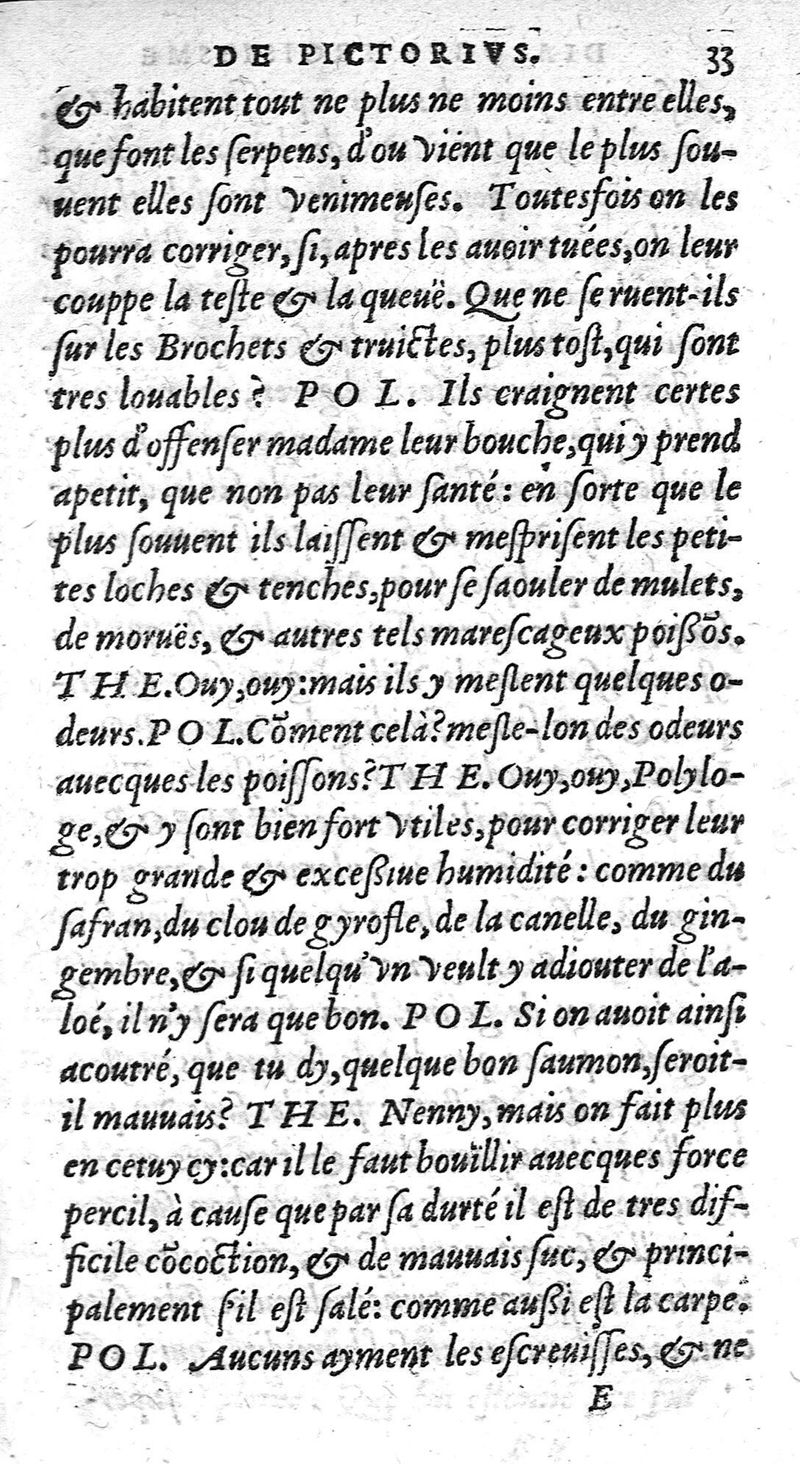 DE PICTORIVS. 33
& habitent tout ne plus ne moins entre elles,
que font les ſerpens, d'ou vient que le plus ſou-
uent elles ſont venimeuſes. Toutesfois on les
pourra corriger, ſi, apres les auoir tuées, on leur
couppe la teſte & la queuë. Que ne ſe ruent-ils
ſur les Brochets & truictes, plus toſt, qui ſont
tres louables? POL. Ils craignent certes
plus d'offenſer madame leur bouche, qui y prend
apetit, que non pas leur ſanté: en ſorte que le
plus ſouuent ils laiſſent & meſpriſent les peti-
tes loches & tenches, pour ſe ſaouler de mulets,
de moruës, & autres tels mareſcageux poißõs.
THE. Ouy, ouy: mais ils y meſlent quelques o-
deurs. POL. Cõment celà? meſle-lon des odeurs
auecques les poiſſons? THE. Ouy, ouy, Polylo-
ge, & y ſont bien fort vtiles, pour corriger leur
trop grande & exceßiue humidité: comme du
ſafran, du clou de gyrofle, de la canelle, du gin-
gembre, & ſi quelqu'vn veult y adiouter de l'a-
loé, il n'y ſera que bon. POL. Si on auoit ainſi
acoutré, que tu dy, quelque bon ſaumon, ſeroit-
il mauuais? THE. Nenny, mais on fait plus
en cetuy cy: car il le faut bouïllir auecques force
percil, à cauſe que par ſa durté il eſt de tres dif-
ficile cõcoction, & de mauuais ſuc, & princi-
palement ſ'il eſt ſalé: comme außi eſt la carpe.
POL. Aucuns ayment les eſcreuiſſes, & ne
E